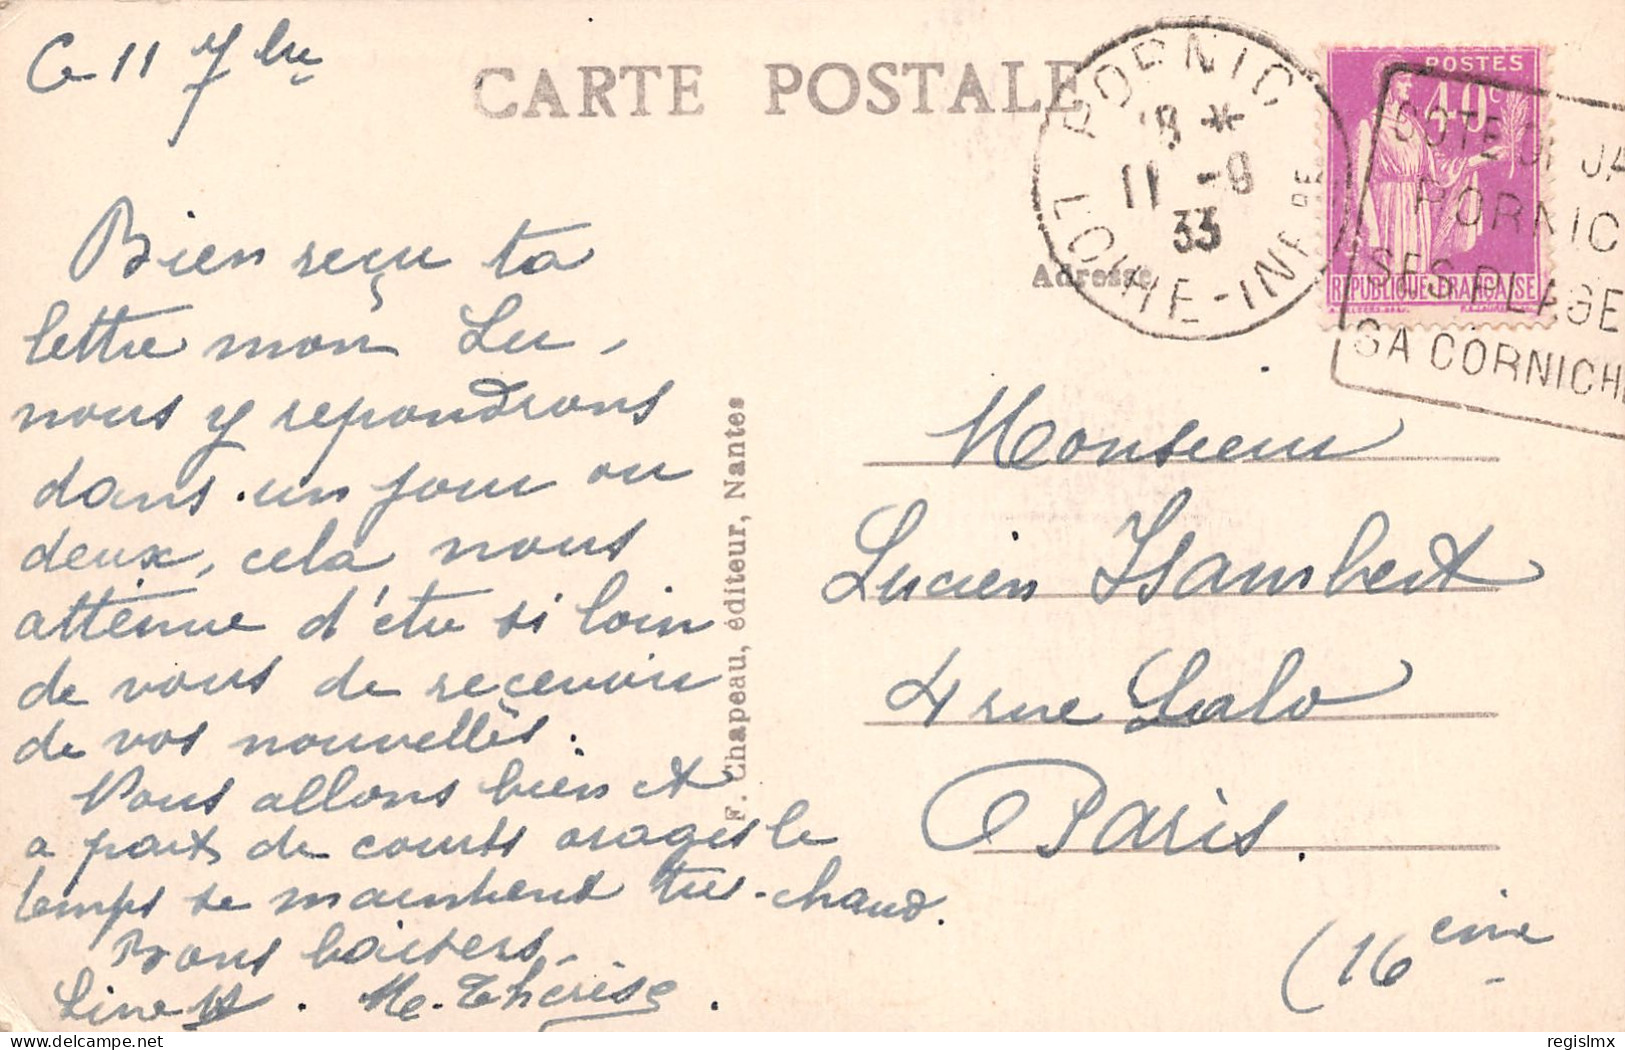 Ce 11 7bre
CARTE POSTALE
PORNIC
18 *
11 -9
33
LOIRE-INFRE
POSTES
40c
REPUBLIQUE FRANÇAISE
COTE DE JA
PORNIC
SES PLAGE
SA CORNICHE
Adresse
Bien reçu ta
lettre mon Lu,
nous y repondrons
dans un jour ou
deux, cela nous
attenue d'être si loin
de vous de recevoir
de vos nouvelles.
Nous allons bien et
a part de courts orages le
temps se maintient très-chaud.
Bons baisers.
Line . M. Thérèse.
F. Chapeau, éditeur, Nantes
Monsieur
Lucien Isambert
4 rue Lalo
Paris.
(16 eme
regislmx
delcampe.net